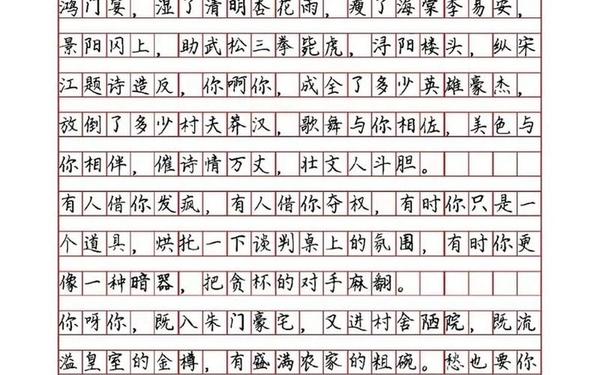 鸿门宴，湿了清明杏花雨，瘦了海棠李易安，
景阳冈上，助武松三拳毙虎，浔阳楼头，纵宋
江题诗造反，你啊你，成全了多少英雄豪杰，
放倒了多少村夫莽汉，歌舞与你相佐，美色与
你相伴，催诗情万丈，壮文人斗胆。
有人借你发疯，有人借你夺权，有时你只是一
个道具，烘托一下谈判桌上的氛围，有时你更
像一种暗器，把贪杯的对手麻翻。
你呀你，既入朱门豪宅，又进村舍陋院，既流
溢皇室的金樽，有盛满农家的粗碗。愁也要你